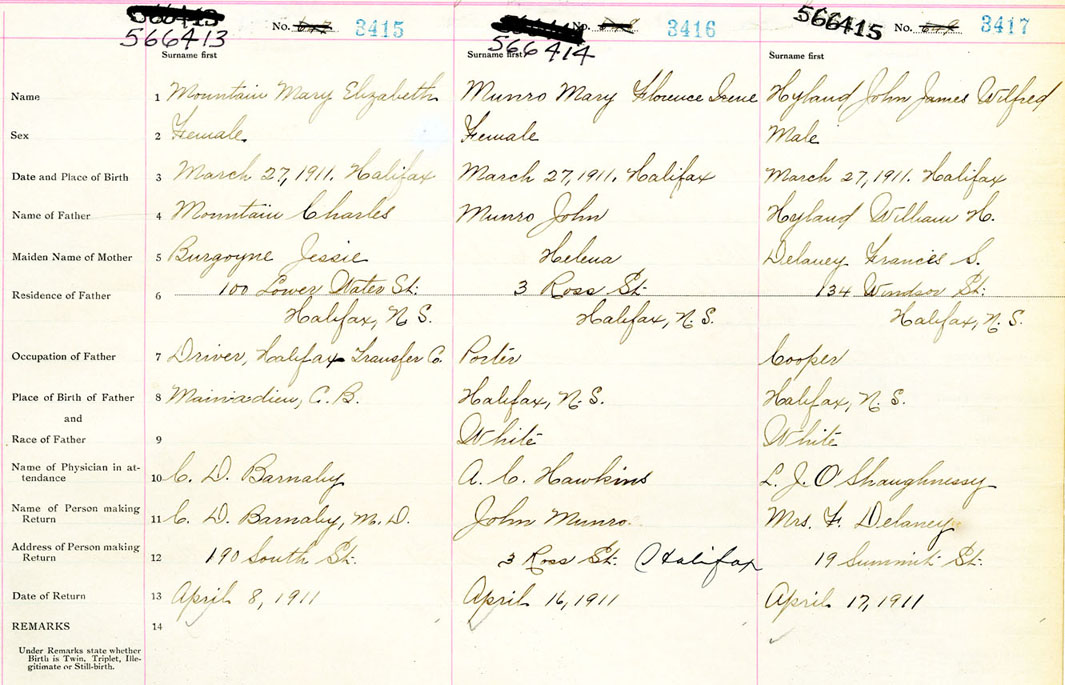 566413 No. 3415 566414 No. 3416 566415 No. 3417
Surname first Surname first Surname first
Name 1 Mountain Mary Elizabeth Munro Mary Florence Irene Hyland John James Wilfred
Sex 2 Female Female Male
Date and Place of Birth 3 March 27, 1911. Halifax March 27, 1911. Halifax March 27, 1911. Halifax
Name of Father 4 Mountain Charles Munro John Hyland William H.
Maiden Name of Mother 5 Burgoyne Jessie Helena Delaney Frances S.
Residence of Father 6 100 Lower Water St. 3 Ross St. 134 Windsor St.
Halifax, N.S. Halifax, N.S. Halifax, N.S.
Occupation of Father 7 Driver, Halifax Transfer Co. Porter Cooper
Place of Birth of Father 8 Mainadieu, C.B. Halifax, N.S. Halifax, N.S.
and
Race of Father 9 White White
Name of Physician in at-
tendance 10 C. D. Barnaby A. C. Hawkins L. J. O'Shaughnessy
Name of Person making
Return 11 C. D. Barnaby, M.D. John Munro. Mrs. F. Delaney
Address of Person making
Return 12 190 South St. 3 Ross St. Halifax 19 Summit St.
Date of Return 13 April 8, 1911 April 16, 1911 April 17, 1911
REMARKS 14
Under Remarks state whether
Birth is Twin, Triplet, Ille-
gitimate or Still-birth.